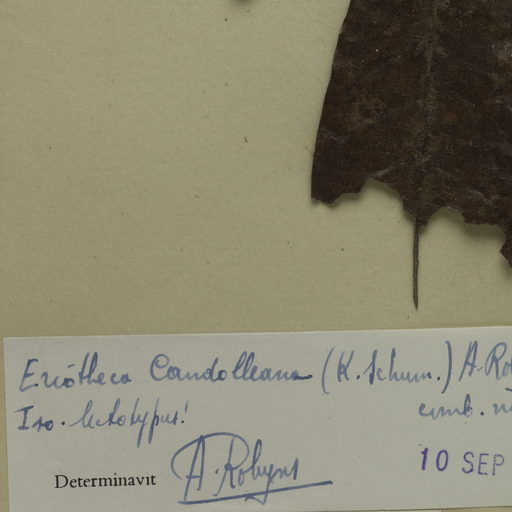 Eriotheca Candolleana (K. Schum.) A. Ro
Iso-lectotypus!
comb.
Determinavit A. Robyns
10 SEP